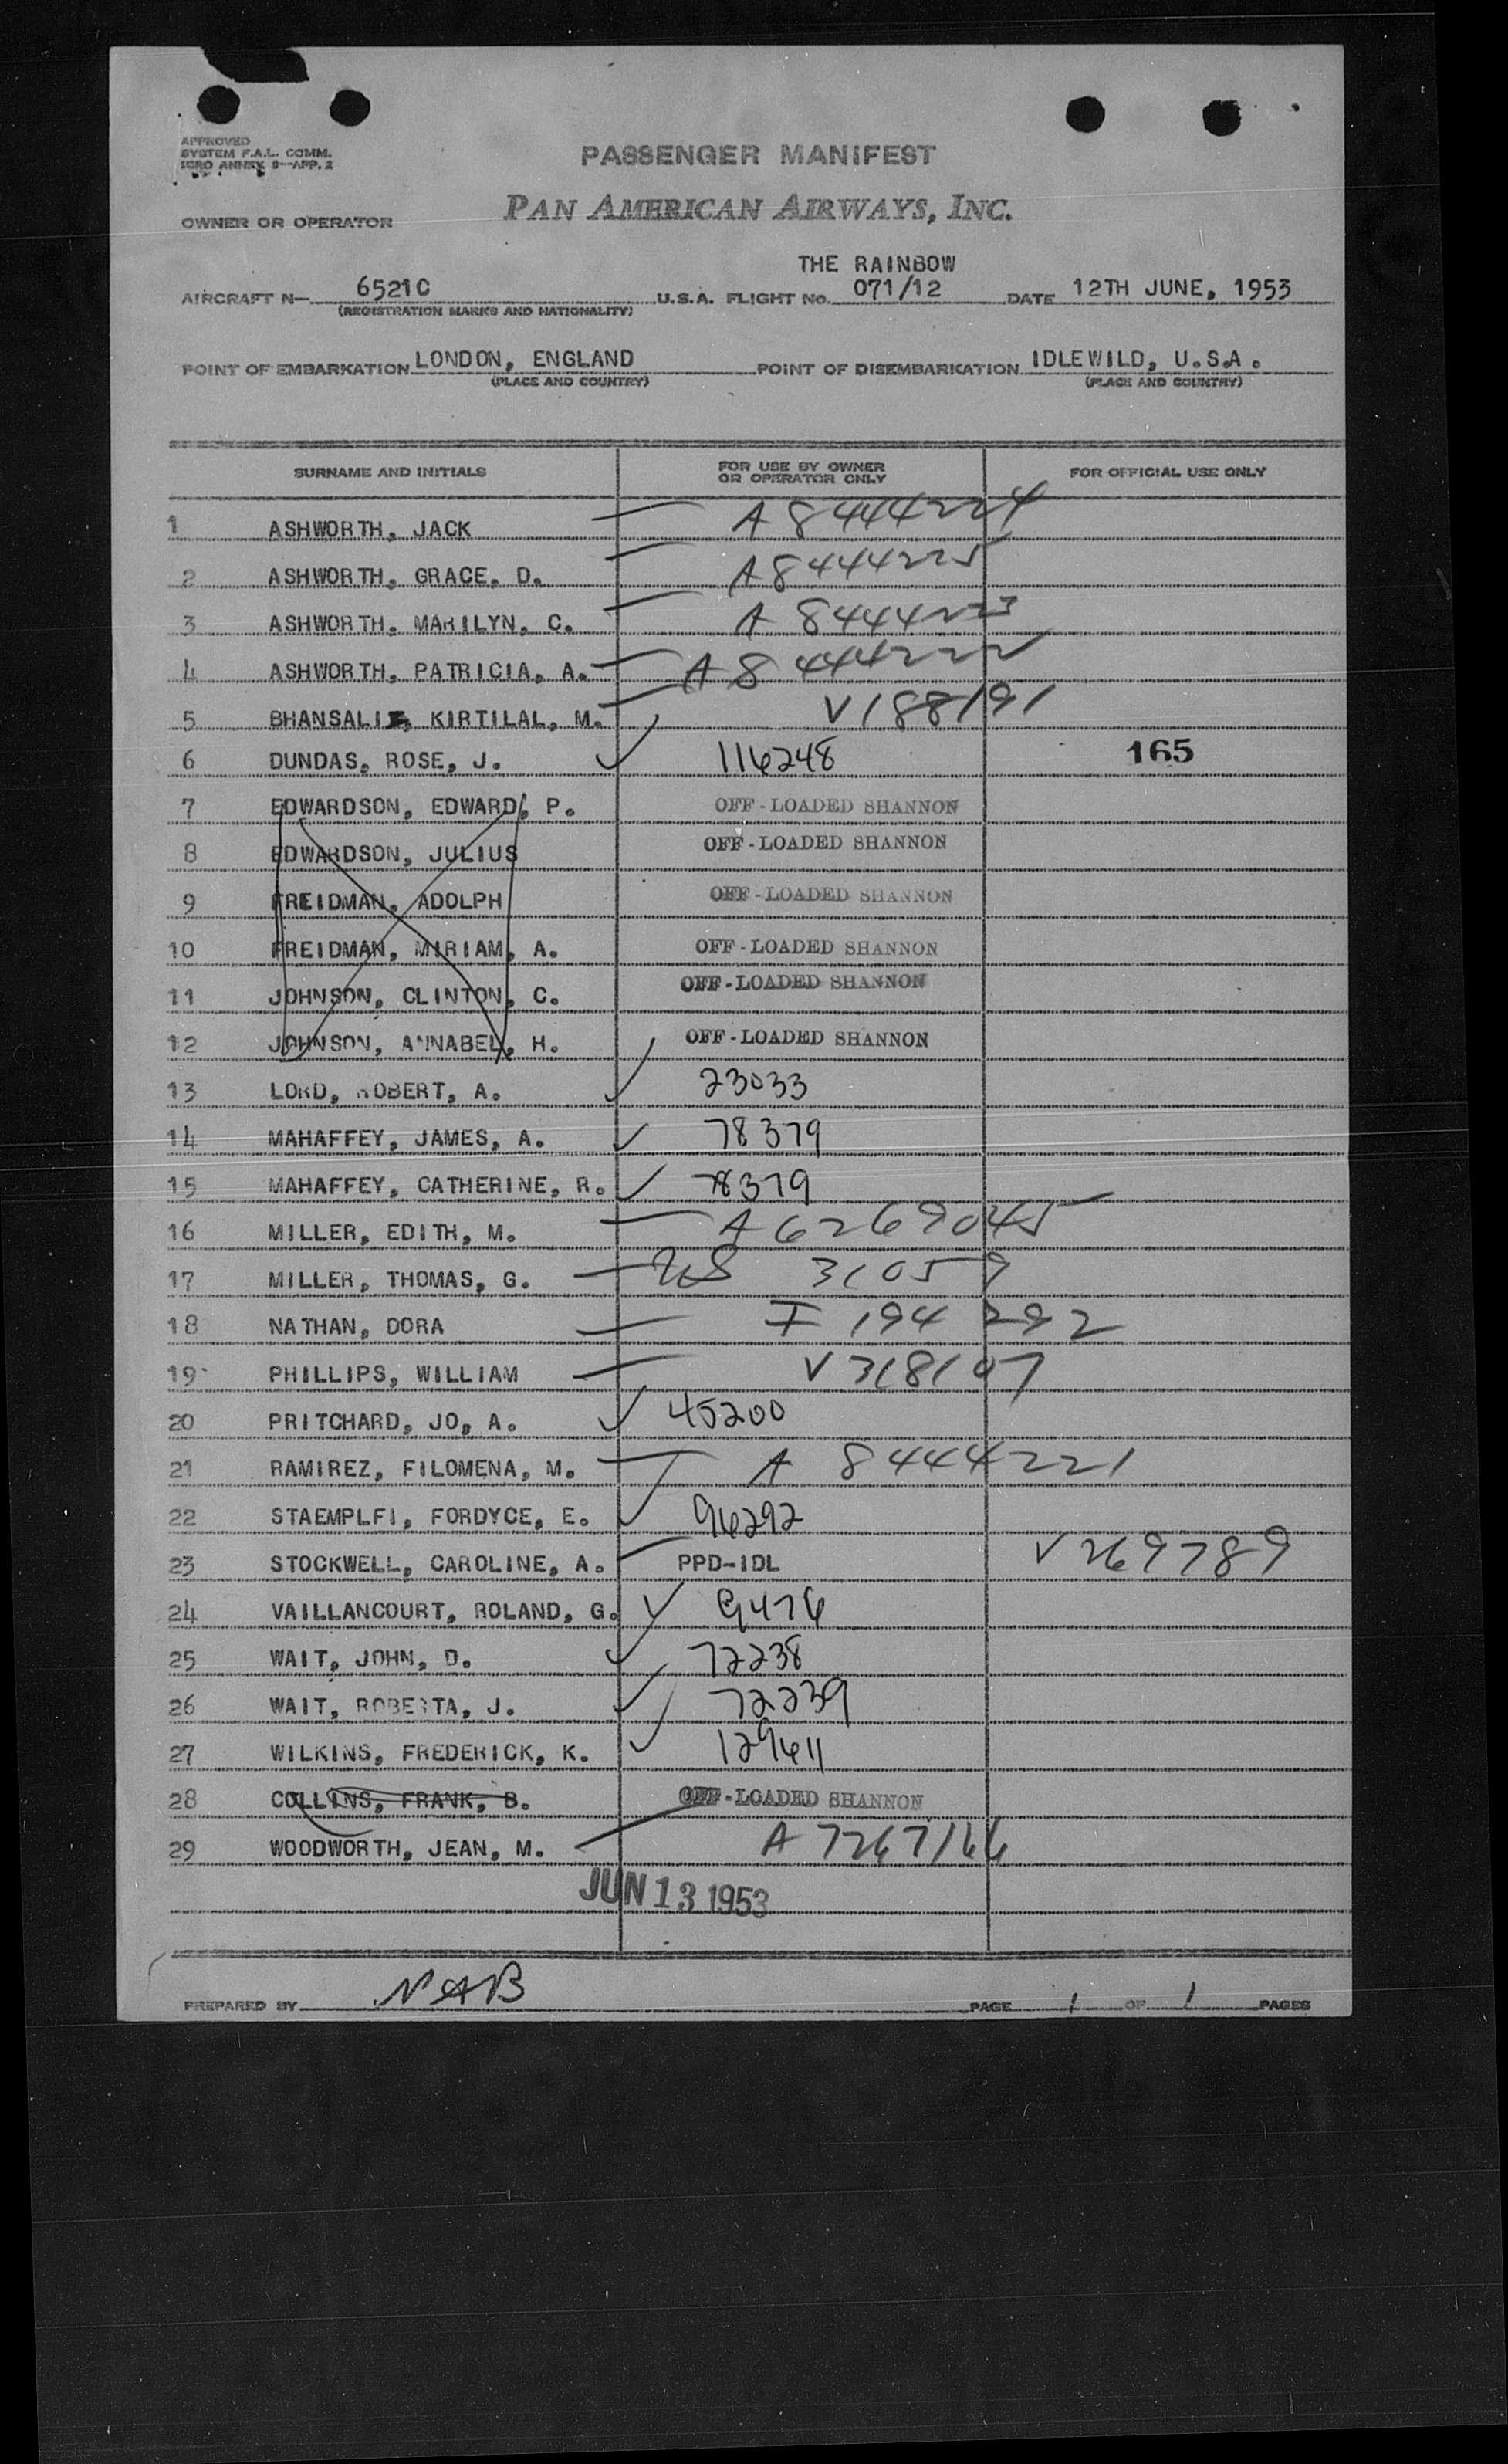 APPROVED
SYSTEM F.A.L. COMM.
ICAO ANNEX 9—APP. 2
PASSENGER MANIFEST
OWNER OR OPERATOR PAN AMERICAN AIRWAYS, INC.
THE RAINBOW
AIRCRAFT N— 6521C U.S.A. FLIGHT NO. 071/12 DATE 12TH JUNE, 1953
(REGISTRATION MARKS AND NATIONALITY)
POINT OF EMBARKATION LONDON, ENGLAND POINT OF DISEMBARKATION IDLEWILD, U.S.A.
(PLACE AND COUNTRY) (PLACE AND COUNTRY)
SURNAME AND INITIALS FOR USE BY OWNER OR OPERATOR ONLY FOR OFFICIAL USE ONLY
1 ASHWORTH, JACK A 8444224
2 ASHWORTH, GRACE, D. A8444225
3 ASHWORTH, MARILYN, C. A 8444223
4 ASHWORTH, PATRICIA, A. A 8444222
5 BHANSALI, KIRTILAL, M. V188191
6 DUNDAS, ROSE, J. 116248 165
7 EDWARDSON, EDWARD, P. OFF-LOADED SHANNON
8 EDWARDSON, JULIUS OFF-LOADED SHANNON
9 FREIDMAN, ADOLPH OFF-LOADED SHANNON
10 FREIDMAN, MIRIAM, A. OFF-LOADED SHANNON
11 JOHNSON, CLINTON, C. OFF-LOADED SHANNON
12 JOHNSON, ANNABEL, H. OFF-LOADED SHANNON
13 LORD, ROBERT, A. 23033
14 MAHAFFEY, JAMES, A. 78379
15 MAHAFFEY, CATHERINE, R. 78379
16 MILLER, EDITH, M. A 6269045
17 MILLER, THOMAS, G. US 31059
18 NATHAN, DORA I 194 292
19 PHILLIPS, WILLIAM V 318107
20 PRITCHARD, JO, A. 45200
21 RAMIREZ, FILOMENA, M. A 8444221
22 STAEMPLFI, FORDYCE, E. 96292
23 STOCKWELL, CAROLINE, A. PPD-IDL V 269789
24 VAILLANCOURT, ROLAND, G. 9476
25 WAIT, JOHN, D. 72238
26 WAIT, ROBERTA, J. 72239
27 WILKINS, FREDERICK, K. 129611
28 COLLINS, FRANK, B. OFF-LOADED SHANNON
29 WOODWORTH, JEAN, M. A 7267166
JUN 13 1953
PREPARED BY NAB PAGE 1 OF 1 PAGES